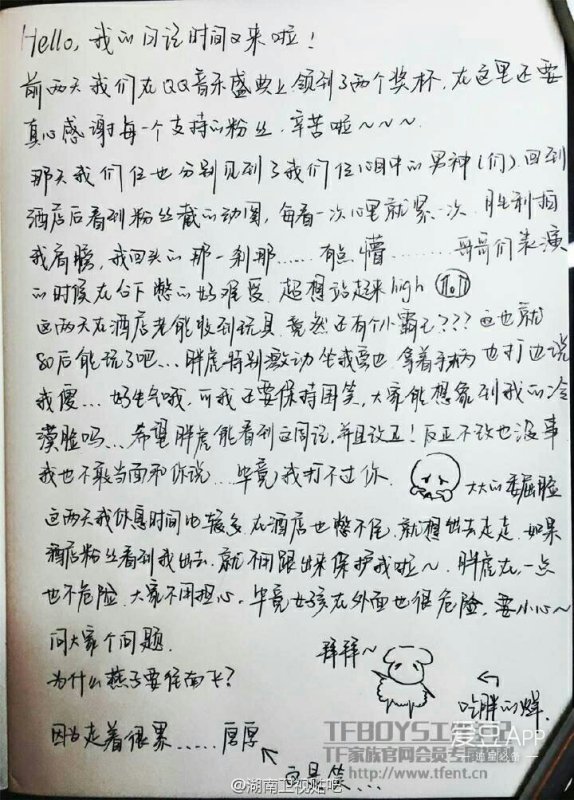 Hello, 我的闪说时间又来啦！
前两天我们在QQ音乐盛典上领到了两个奖杯，在这里还要
真心感谢每一个支持的粉丝，辛苦啦～～～
那天我们仨也分别见到了我们仨心目中的男神(们)，回到
酒店后看到粉丝截的动图，每看一次心里就累一次，胜利拍
我肩膀，我回头的那一刹那……有点懵………哥哥们表演
的时候在台下憋的好难受，超想站起来high
这两天在酒店老能收到玩具，竟然还有个小霸王???这也就
80后能玩了吧…胖虎特别激动坐我旁边，拿着手柄也打边说
我傻…好生气哦，可我还要保持围笑，大家能想象到我的冷
漠脸吗…希望胖虎能看到这周记，并且改正！反正不改也没事
我也不敢当面和你说…毕竟我打不过你.
大大的委屈脸
这两天我休息时间也较多，在酒店也憋不住，就想出去走走，如果
酒店粉丝看到我出去，就不用跟出来保护我啦～，胖虎在，一点
也不危险，大家不用担心，毕竟女孩在外面也很危险，要小心～
问大家个问题.
为什么燕子要往南飞？
因为走着很累……厚厚
拜拜～
吃胖的鲜.
TFBOYS
TF家族官网会员专
http://www.tfent.cn
爱豆APP
追星必备
@湖南卫视贴吧